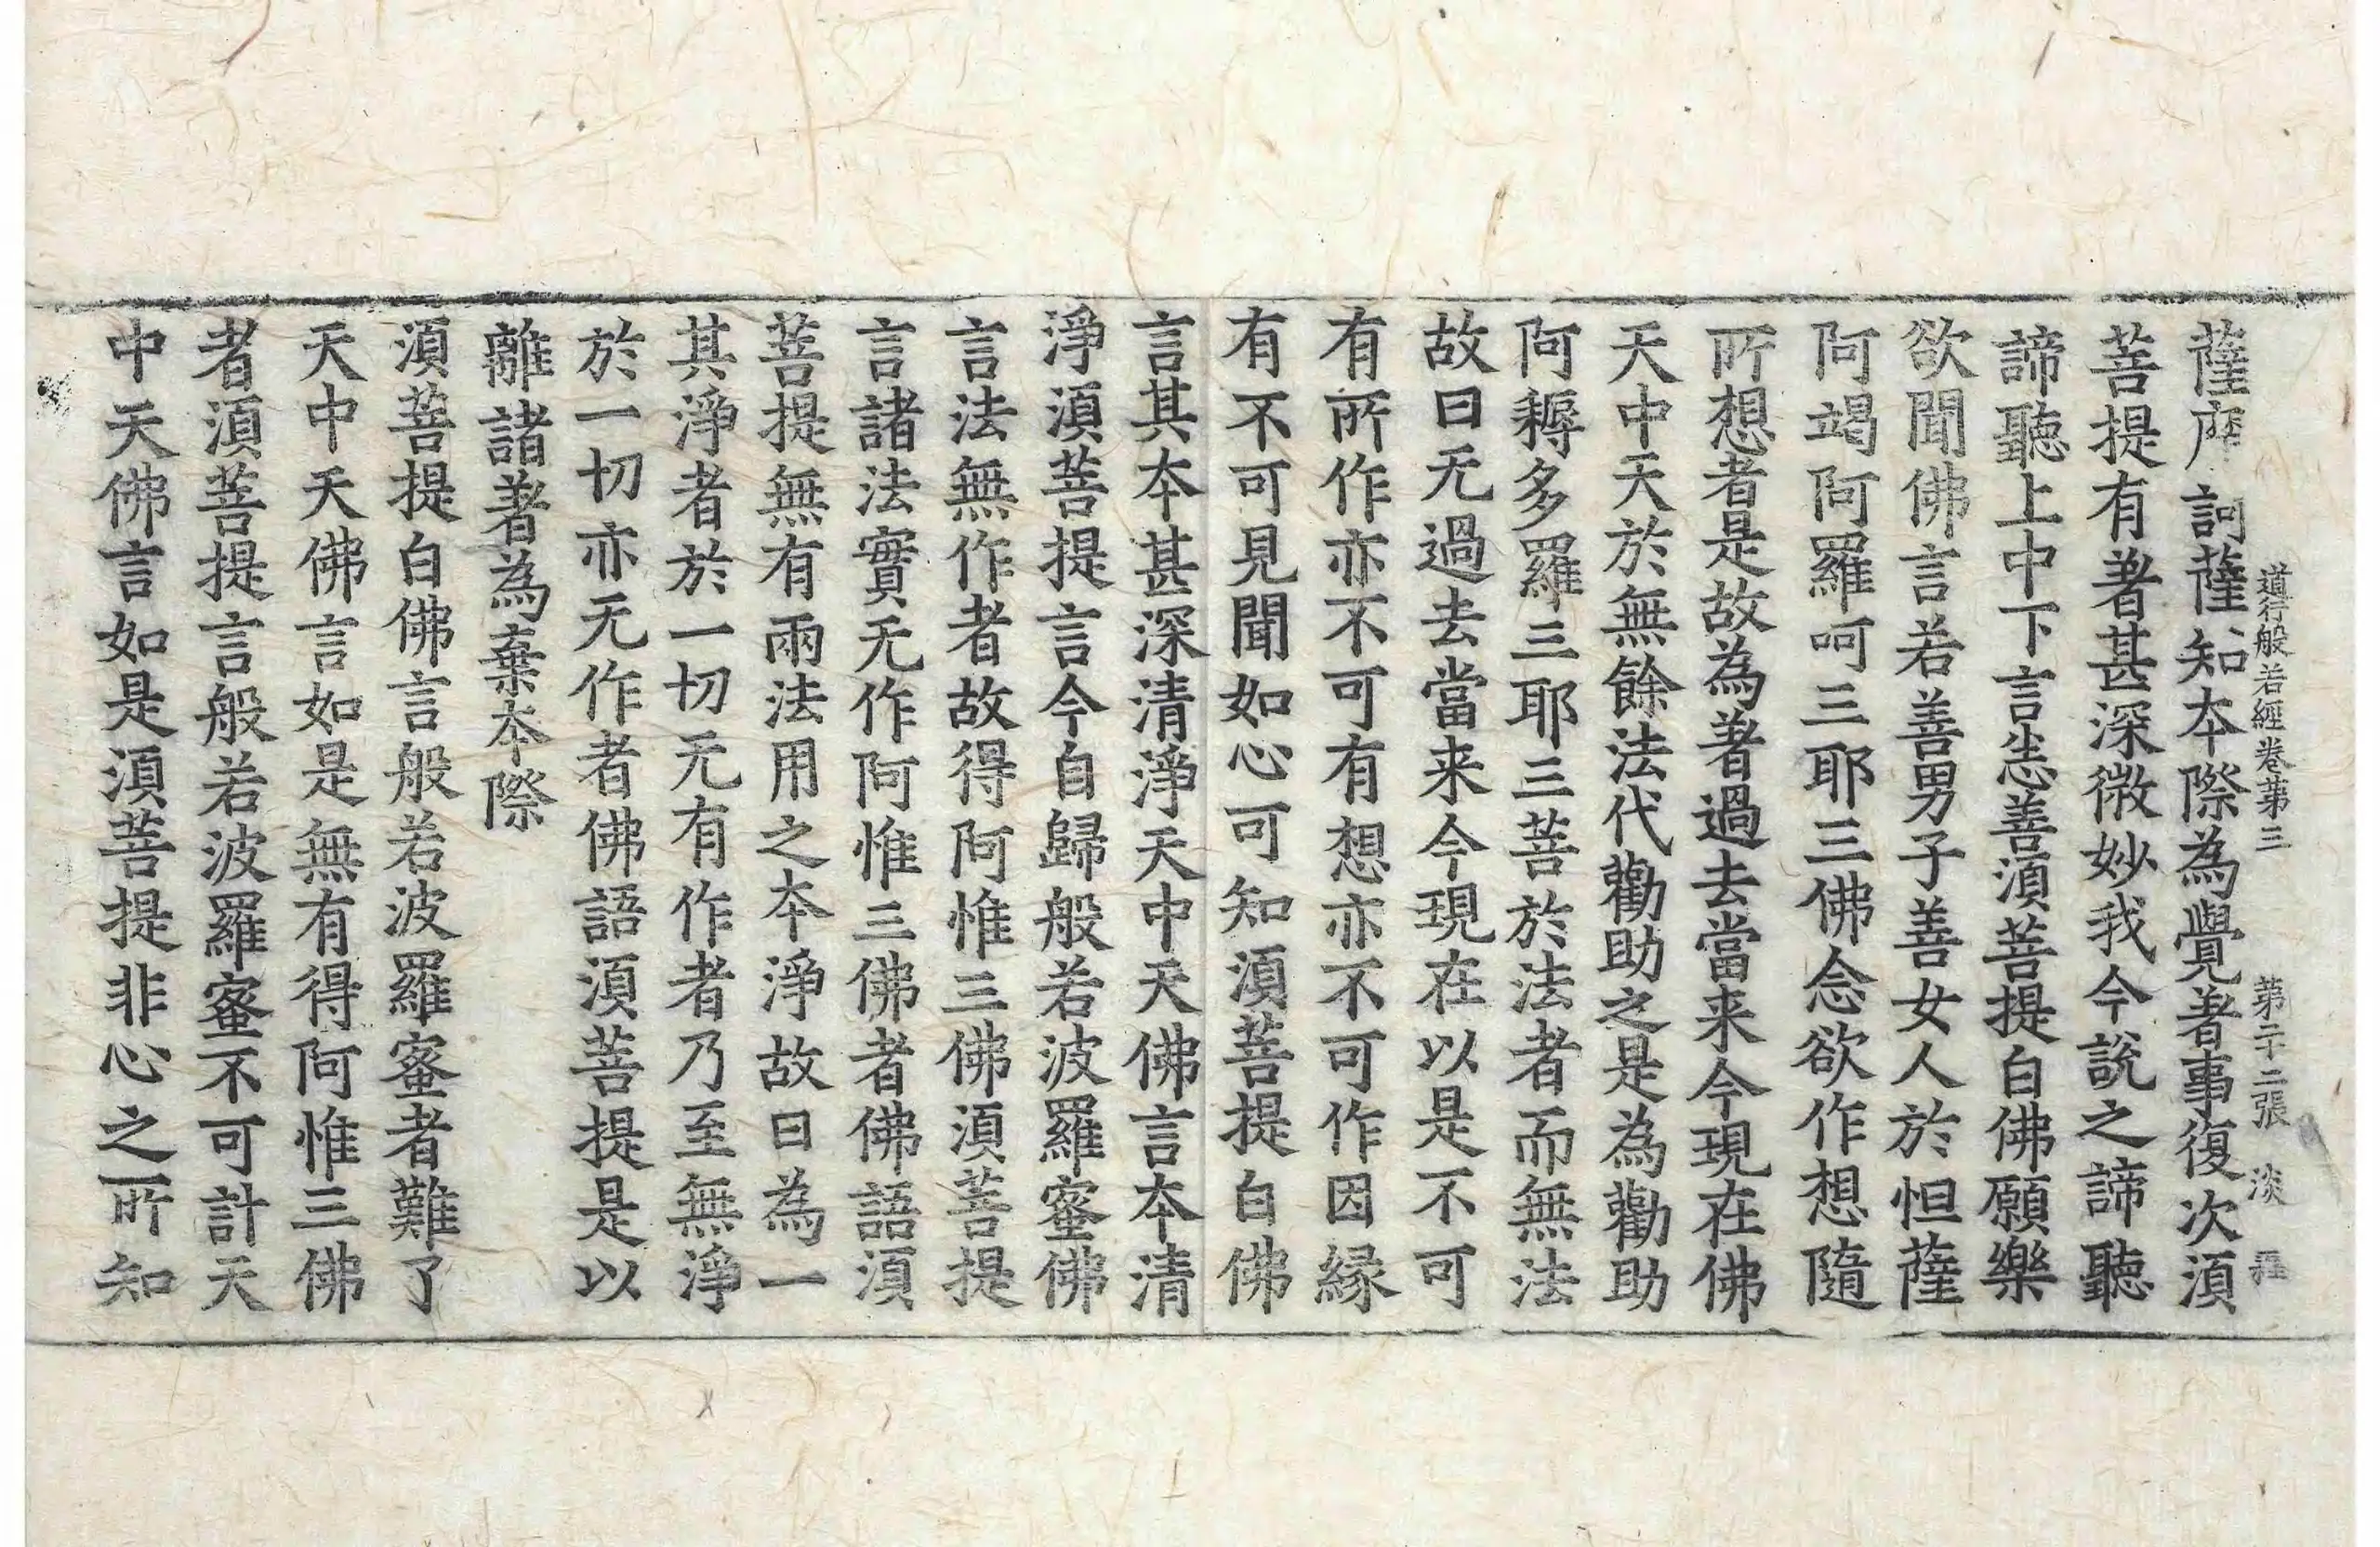 道行般若經卷第三　第二十二張　淡
薩摩訶薩知本際為覺著事復次湏
菩提有著甚深微妙我今說之諦聽
諦聽上中下言悉善湏菩提白佛願樂
欲聞佛言若善男子善女人於怛薩
阿竭阿羅呵三耶三佛念欲作想隨
所想者是故為著過去當来今現在佛
天中天於無餘法代勸助之是為勸助
阿耨多羅三耶三菩於法者而無法
故曰无過去當来今現在以是不可
有所作亦不可有想亦不可作因緣
有不可見聞如心可知湏菩提白佛
言其本甚深清淨天中天佛言本清
淨湏菩提言今自歸般若波羅蜜佛
言法無作者故得阿惟三佛湏菩提
言諸法實无作阿惟三佛者佛語湏
菩提無有兩法用之本淨故曰為一
其淨者於一切无有作者乃至無淨
於一切亦无作者佛語湏菩提是以
離諸著為棄本際
湏菩提白佛言般若波羅蜜者難了
天中天佛言如是無有得阿惟三佛
者湏菩提言般若波羅蜜不可計天
中天佛言如是湏菩提非心之所知